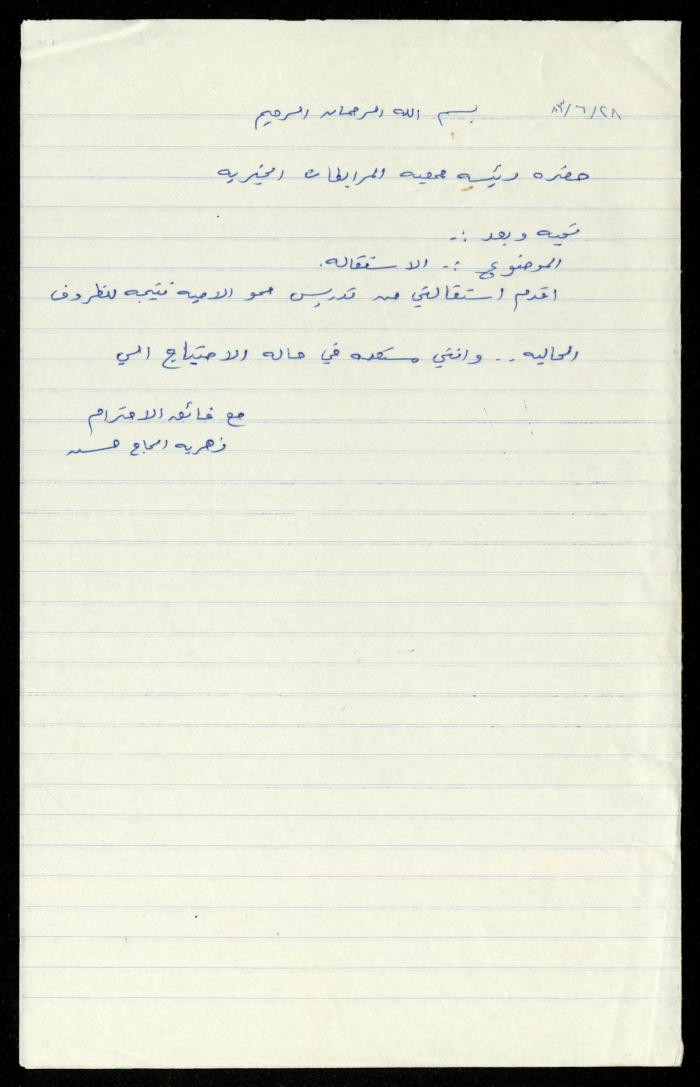 ٨٣/٦/٢٨
بسم الله الرحمان الرحيم
حضره رئيسه جمعيه المرابطات الخيريه
تحيه وبعد :-
الموضوع :- الاستقاله.
اقدم استقالتي من تدريس محو الاميه نتيجه للظروف
الحاليه .. وانني مستعده في حاله الاحتياج الي
مع فائق الاحترام
زهريه الحاج حسن